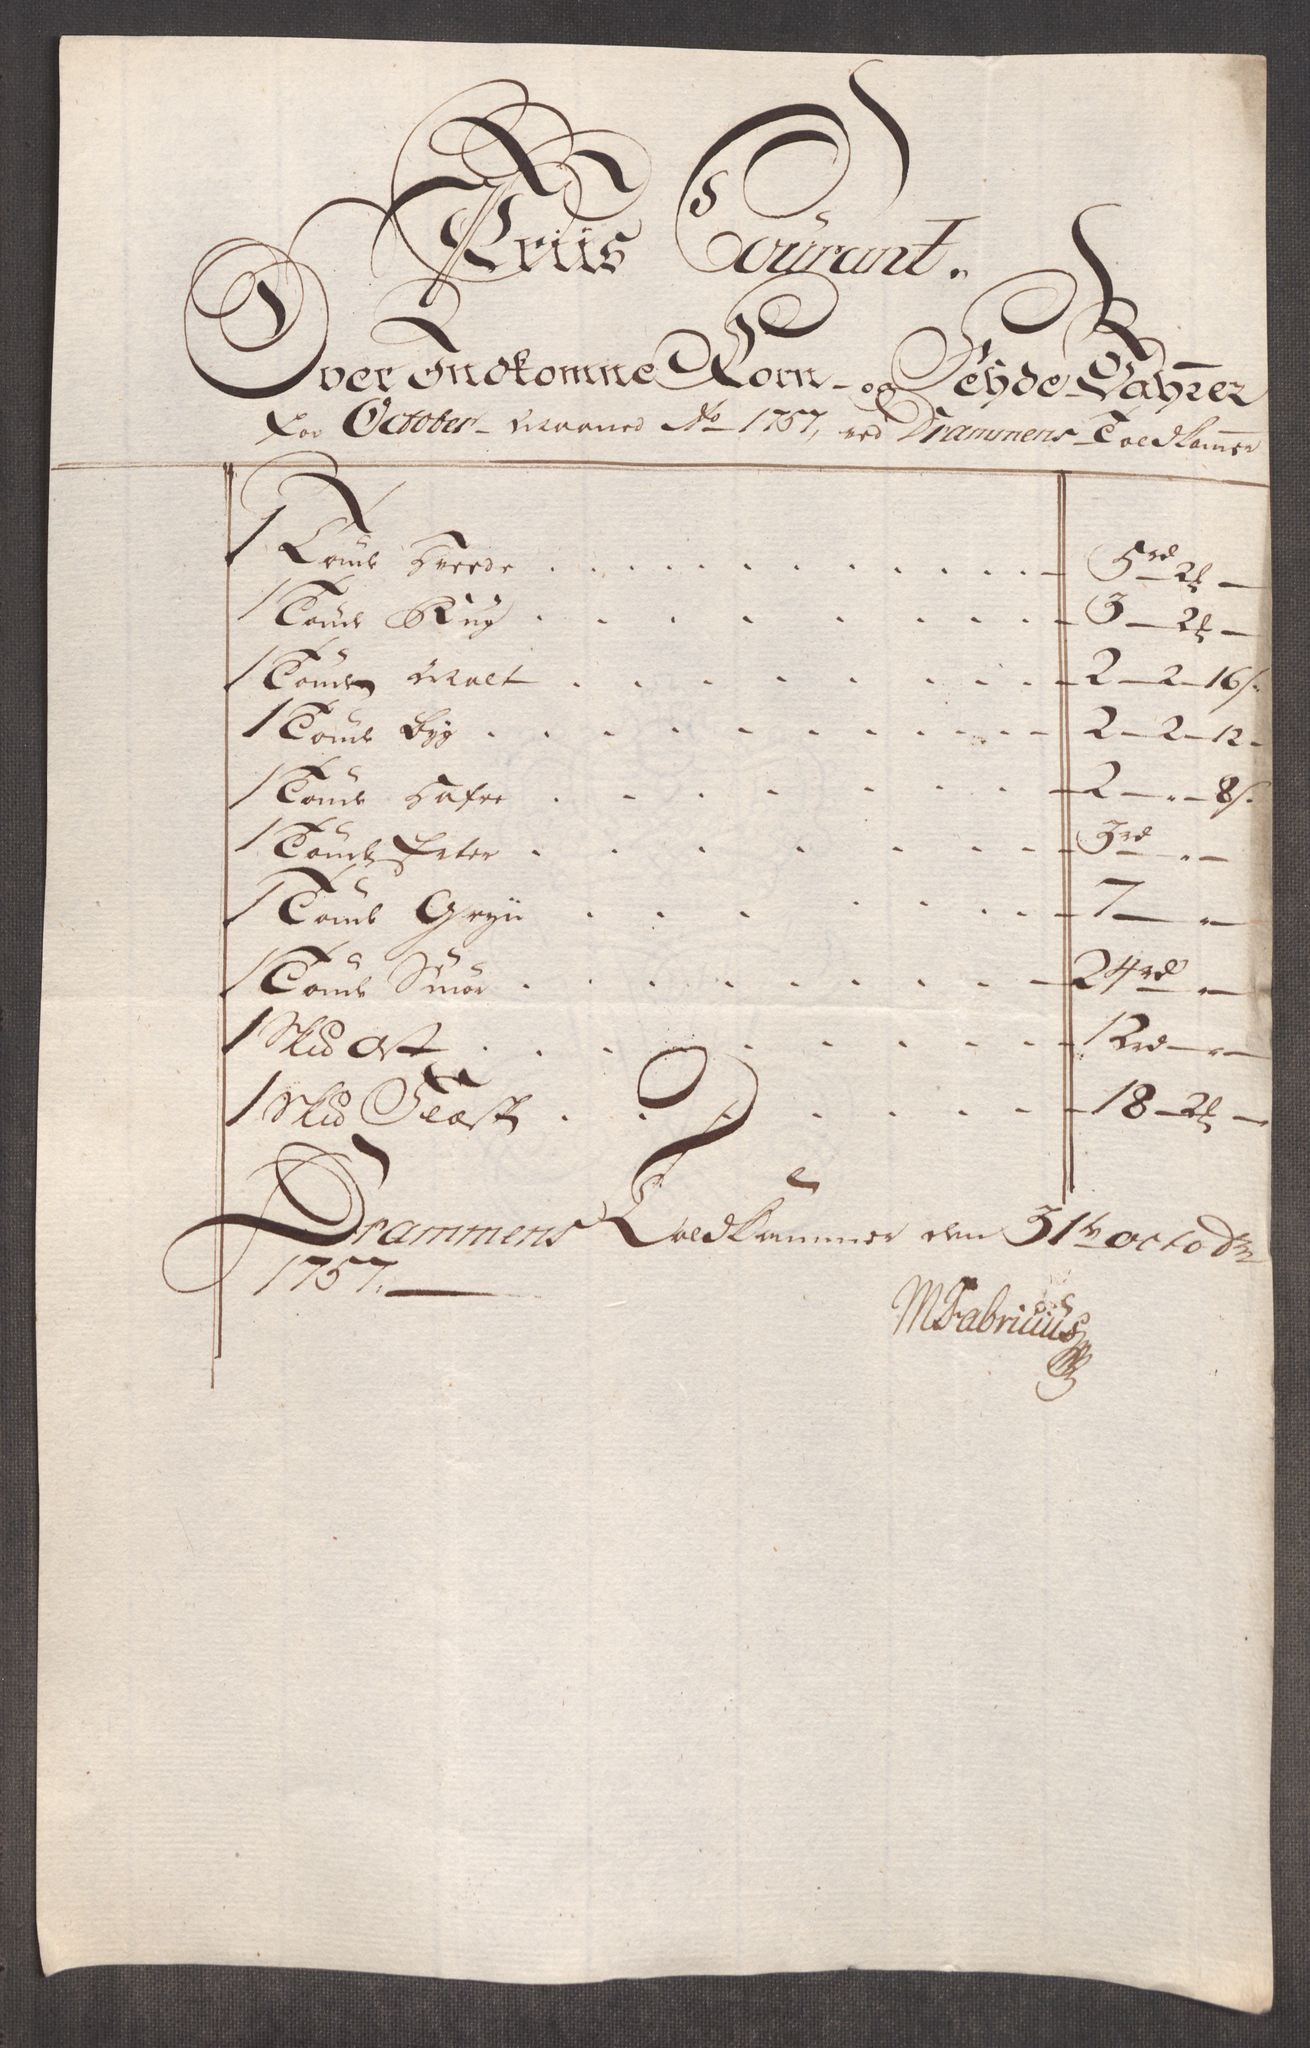 Priis Courant.
Over Indkomne Korn- og Fehde-Vahrer
for October- Maaned Ao 1757, ved Drammens Toldkammer
1 Tønde Hvede 5 rd 2 ß
1 Tønde Rug 3 2 ß
1 Tønde Malt 2 2 16 s.
1 Tønde Byg 2 2 12
1 Tønde Hafre 2 " 8 s.
1 Tønde Erter 3 rd "
1 Tønde Gryn 7 "
1 Tønde Smør 24 rd "
1 Sk℔ Ost 12 rd "
1 Sk℔ Flæsk 18 2 ß
Drammens Toldkammer den 31te octobr
1757.
MFabricius